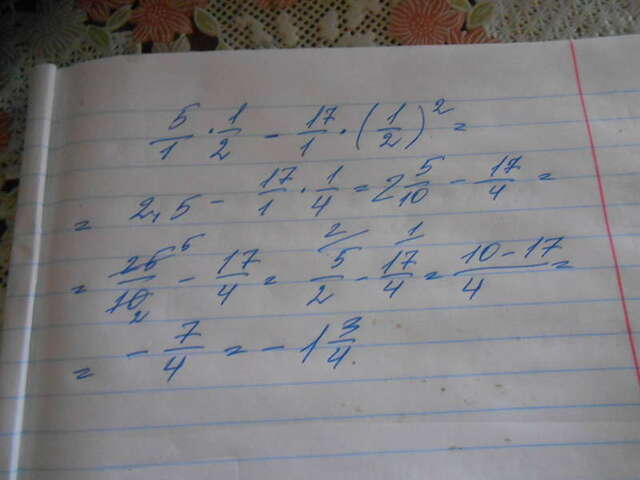 5/1 · 1/2 - 17/1 · (1/2)² =
= 2,5 - 17/1 · 1/4 = 2 5/10 - 17/4 =
= 25 5/10 2 - 17/4 = 2/ 5/2 - 1/ 17/4 = 10-17/4 =
= - 7/4 = - 1 3/4